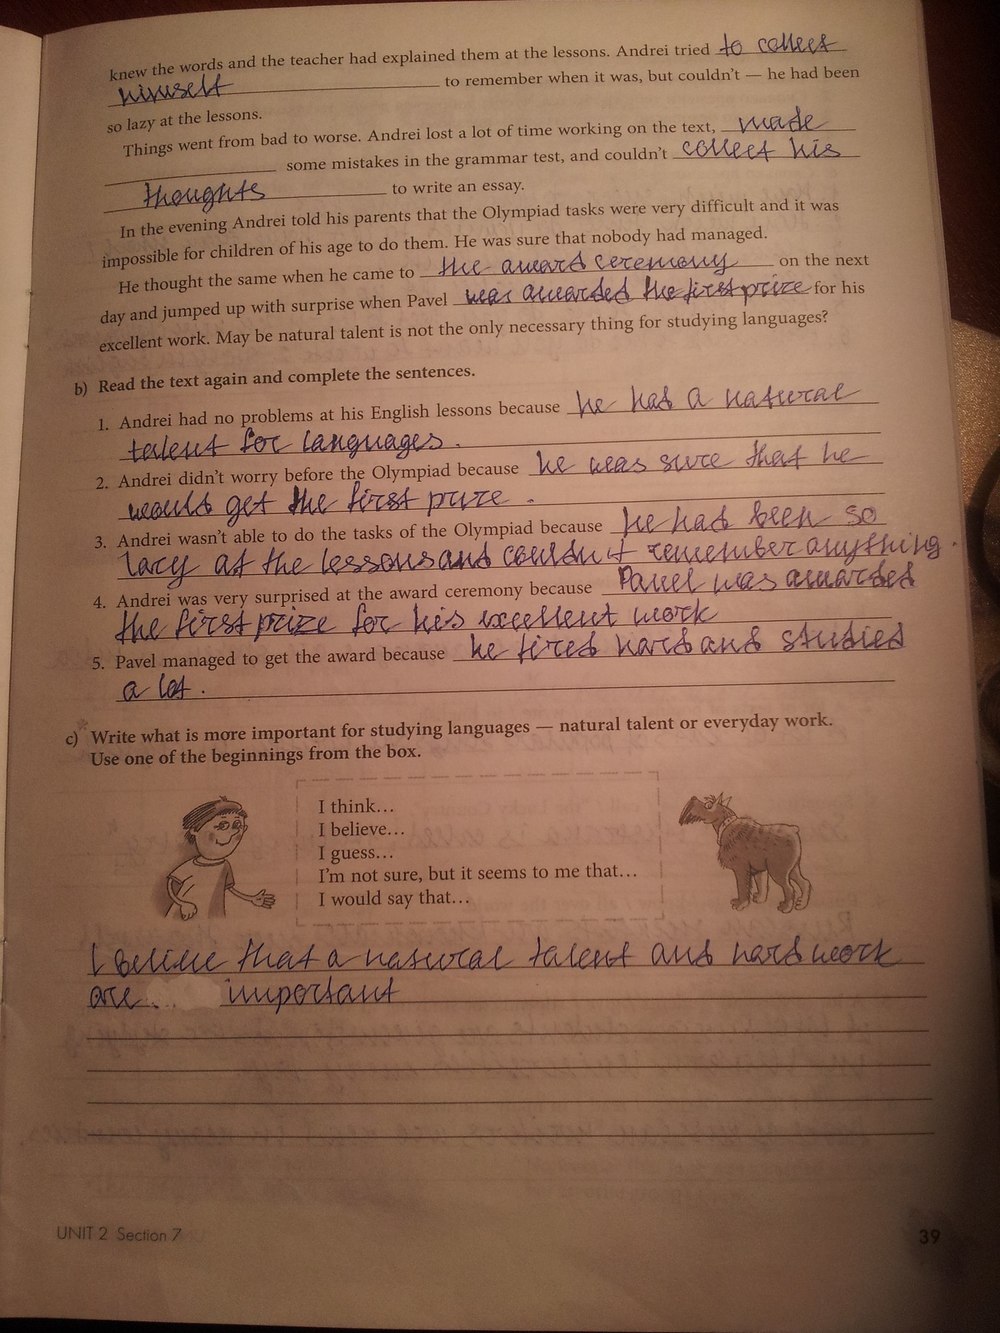 knew the words and the teacher had explained them at the lessons. Andrei tried to collect
himself to remember when it was, but couldn't — he had been
so lazy at the lessons.
Things went from bad to worse. Andrei lost a lot of time working on the text, made
some mistakes in the grammar test, and couldn't collect his
thoughts to write an essay.
In the evening Andrei told his parents that the Olympiad tasks were very difficult and it was
impossible for children of his age to do them. He was sure that nobody had managed.
He thought the same when he came to the award ceremony on the next
day and jumped up with surprise when Pavel was awarded the first prize for his
excellent work. May be natural talent is not the only necessary thing for studying languages?
b) Read the text again and complete the sentences.
1. Andrei had no problems at his English lessons because he had a natural
talent for languages.
2. Andrei didn't worry before the Olympiad because he was sure that he
would get the first prize.
3. Andrei wasn't able to do the tasks of the Olympiad because he had been so
lazy at the lessons and couldn't remember anything.
4. Andrei was very surprised at the award ceremony because Pavel was awarded
the first prize for his excellent work
5. Pavel managed to get the award because he tired hard and studied
a lot.
c) Write what is more important for studying languages — natural talent or everyday work.
Use one of the beginnings from the box.
I think...
I believe...
I guess...
I'm not sure, but it seems to me that...
I would say that...
I believe that a natural talent and hard work
are important
UNIT 2 Section 7
39